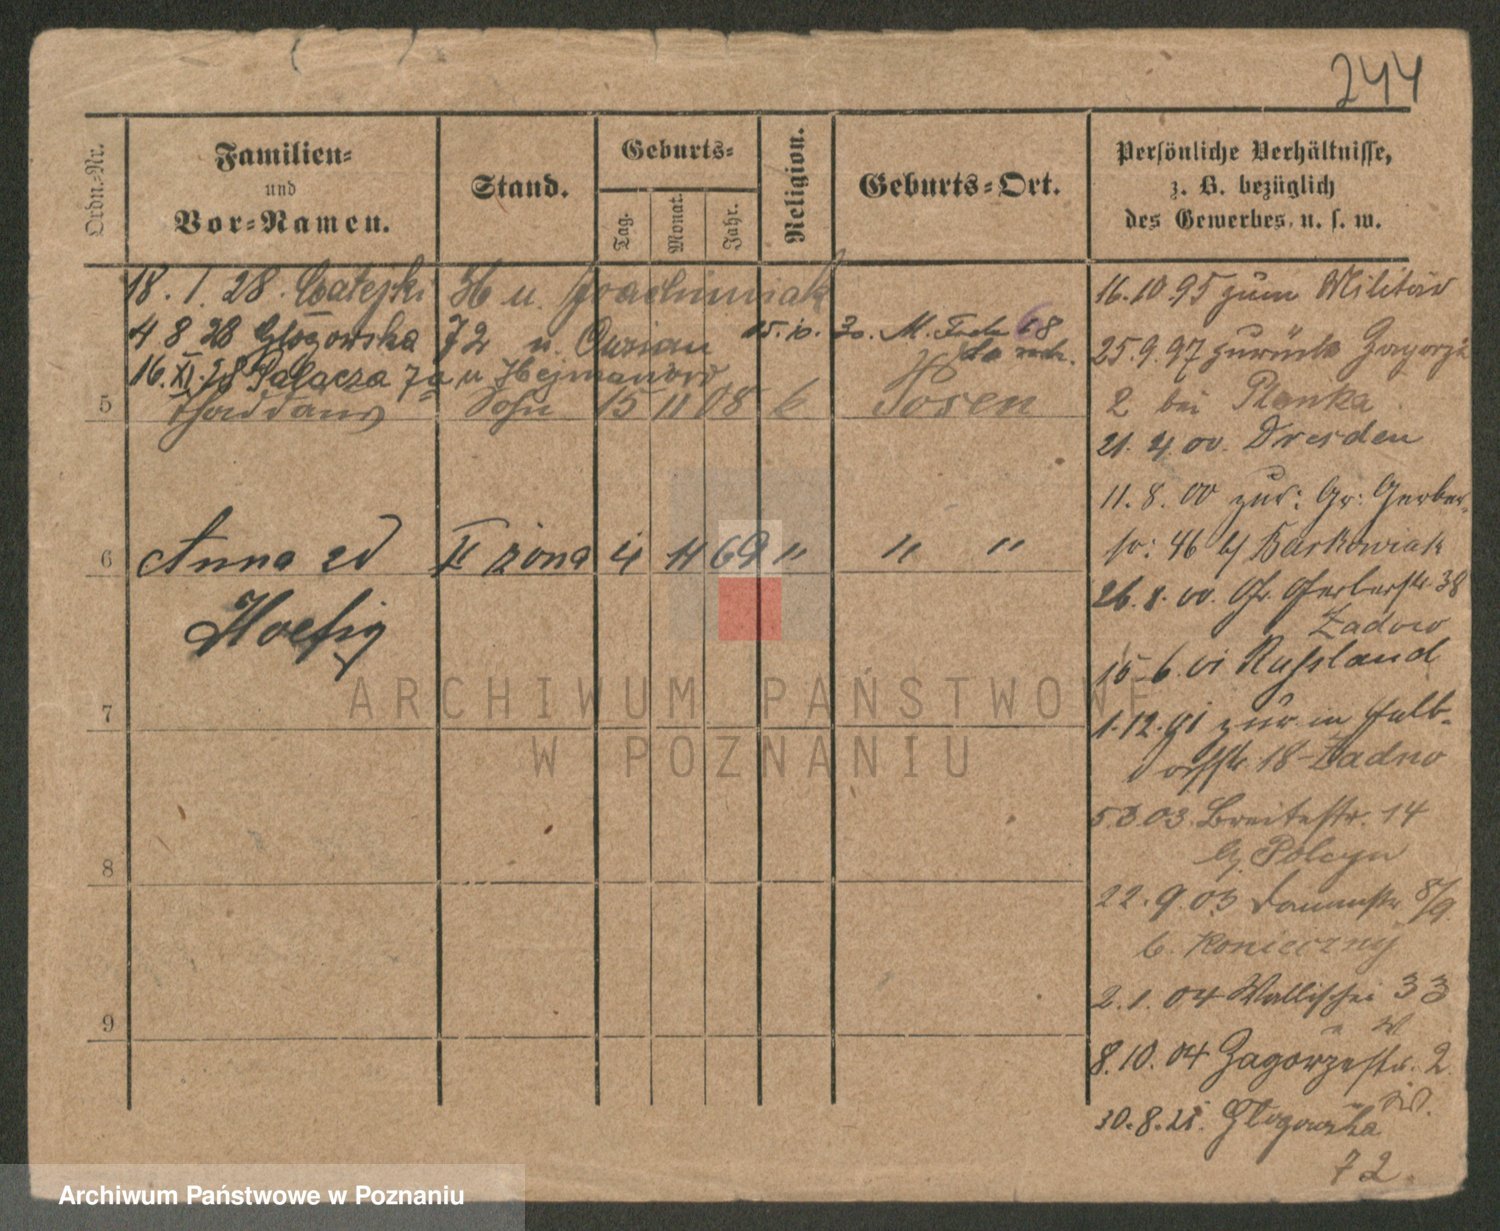 244
Ordn.-Nr.
Familien-
und
Vor-Namen.
Stand.
Geburts-
Tag.
Monat.
Jahr.
Religion.
Geburts-Ort.
Persönliche Verhältnisse,
z. B. bezüglich
des Gewerbes. u. s. w.
18. 1. 28. Matejki u. Joachimiak
4 8 28 Głogowska 72 u.
15.10.30. M. 68
16.XI.28 Palacza 7a u Hejmanów
5 Thaddäus Sohn 15 11 08 k Posen
6 Anna zd II żona 4 11 69 " " "
Hoefig
7
8
9
16.10.95 zum Militär
25.9.97 zurück Zagorze
2 bei Planka
21. 4. 00. Dresden
11. 8. 00 zur: Gr: Gerber-
str: 46 b/ Baskowiak
26. 8. 00. Gr. Gerberstr. 38
Zadow
15. 6. 01 Russland
1. 12. 01 zur. in Halb-
dorfstr. 18
5.3.03. Breitestr. 14
b/ Polcyn
22. 9. 03 Dammstr 8/9
b. Konieczny
2. 1. 04 Wallischei 33
8. 10. 04 Zagorzestr. 2
30. 8. 21. Głogowska
72.
ARCHIWUM PAŃSTWOWE
W POZNANIU
Archiwum Państwowe w Poznaniu